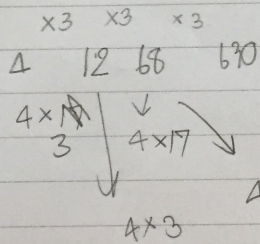 ×3 ×3 ×3
4 12 68 630
4×
3 4×17
4×3